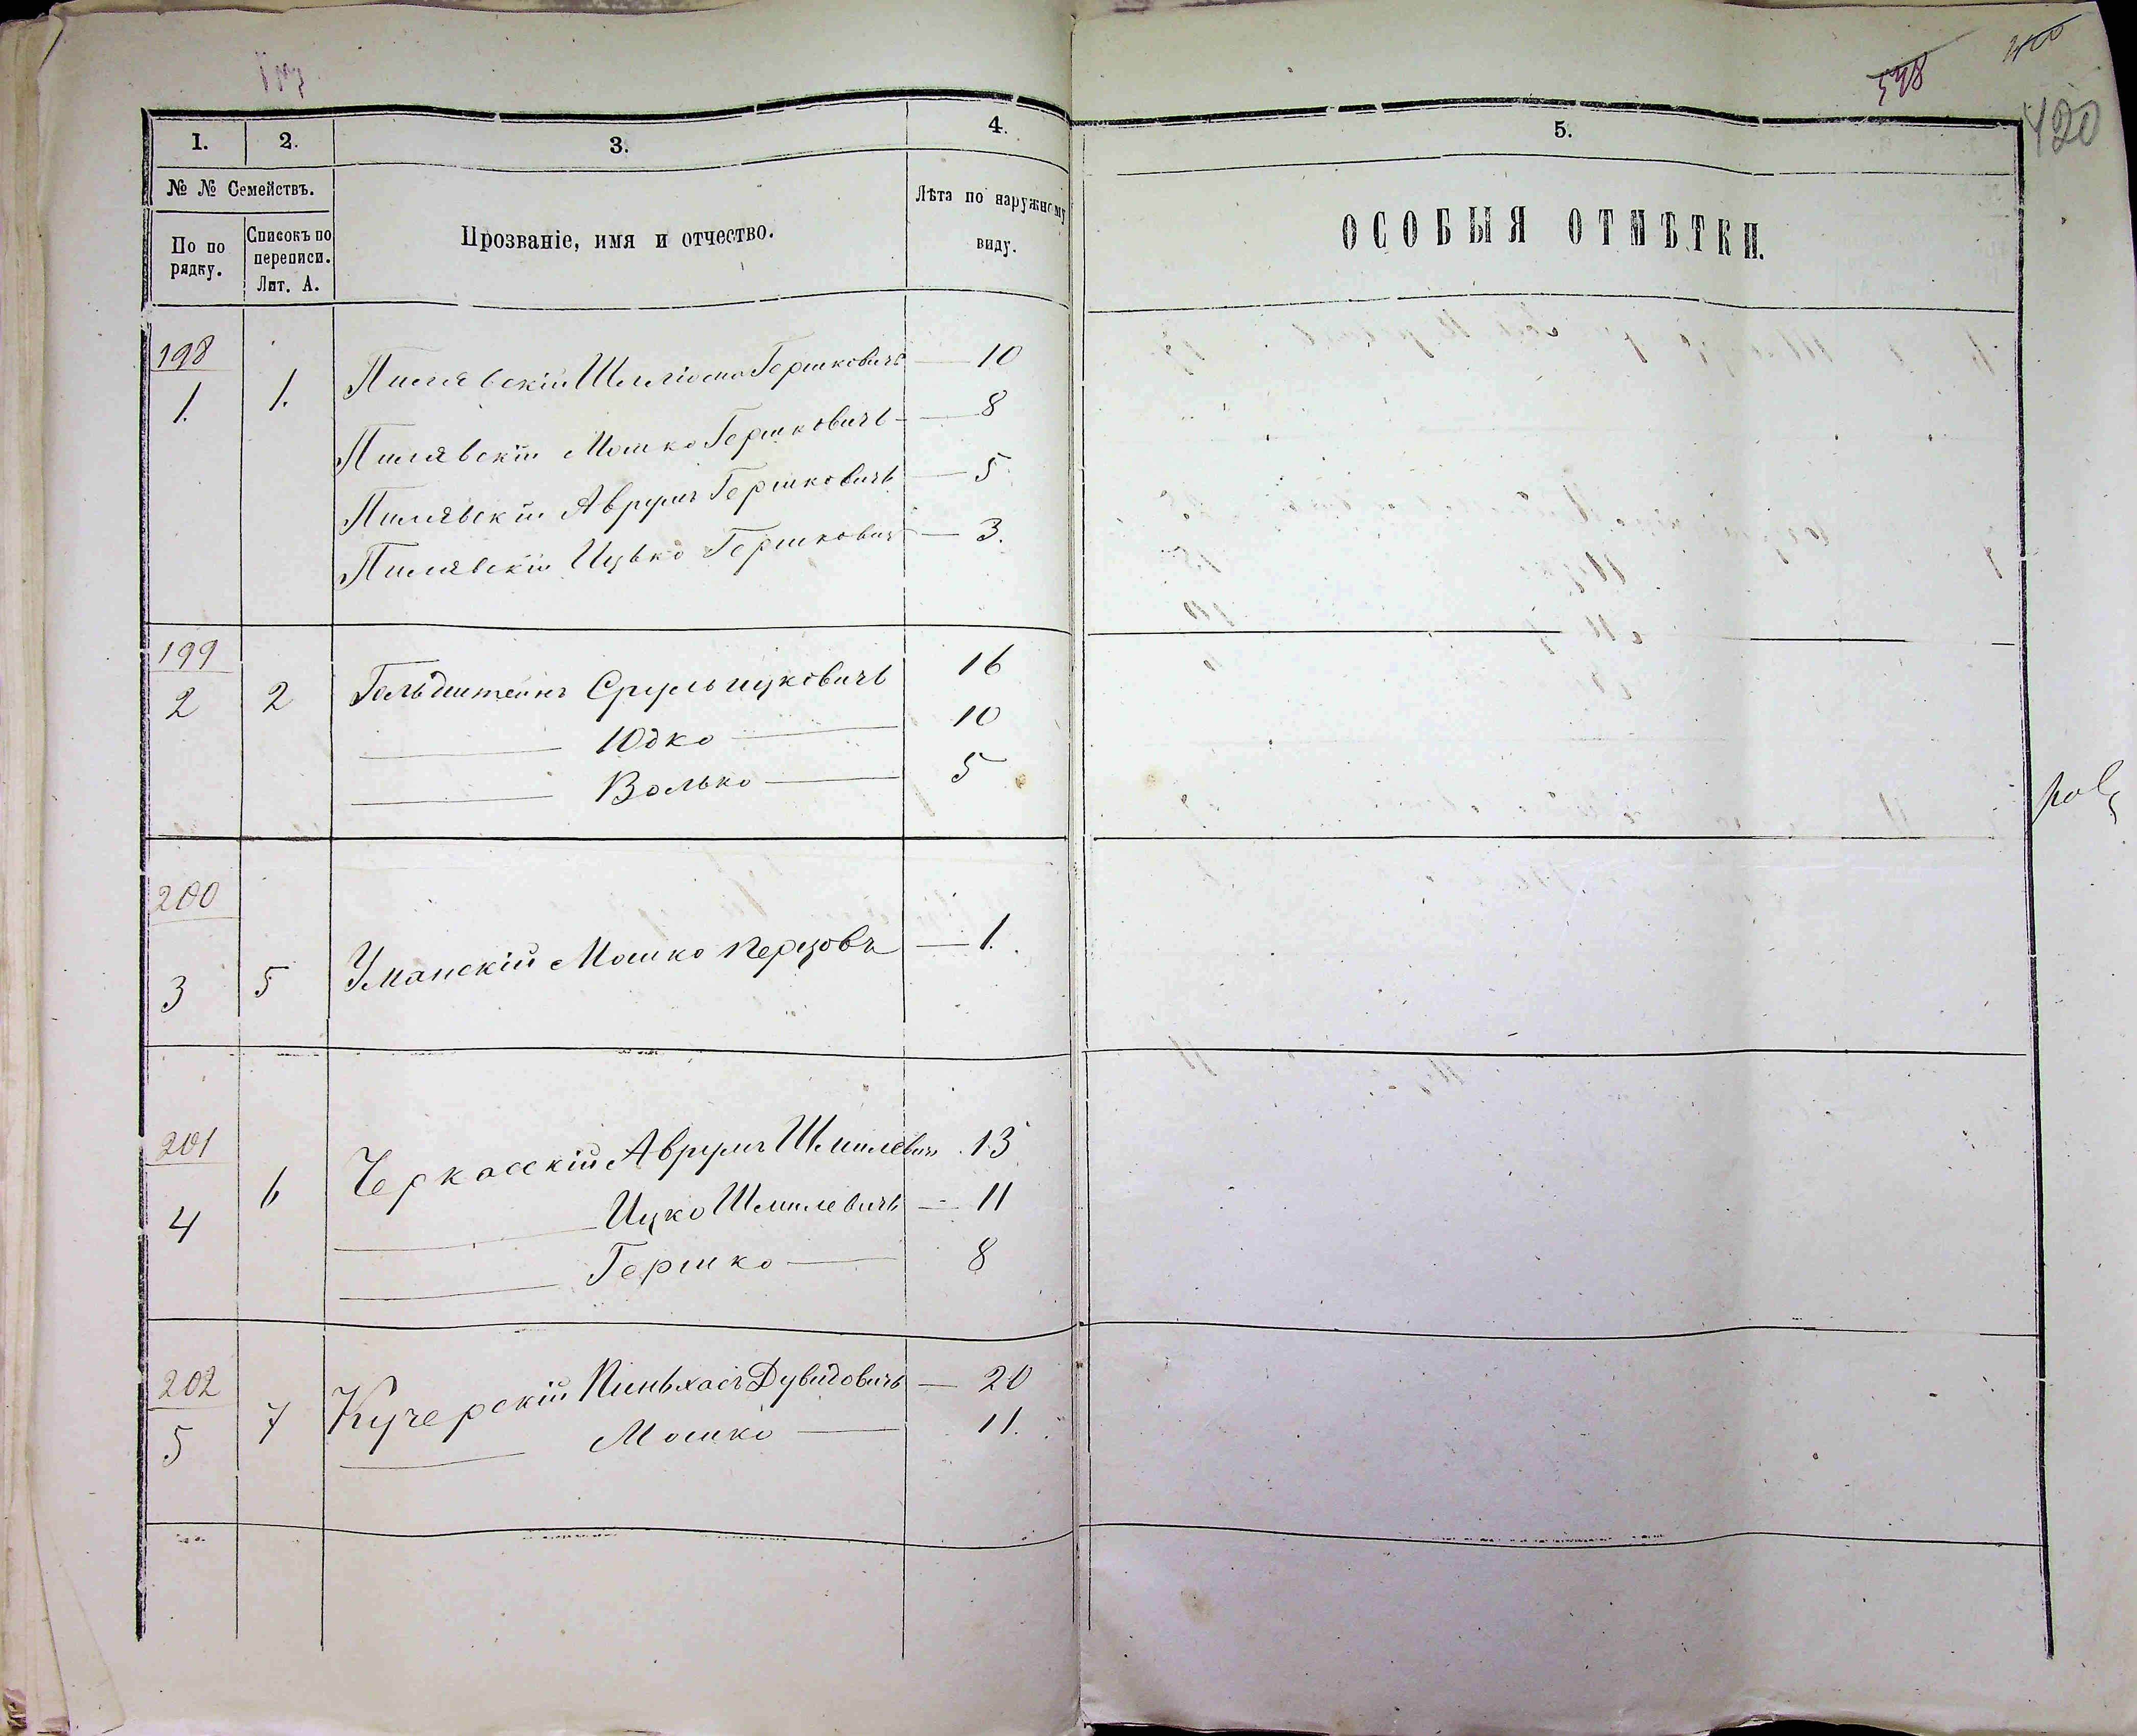 548
400
420
1. 2. 3. 4. 5.
№ № Семействъ.
По по рядку.
Списокъ по переписи. Лит. А.
Прозваніе, имя и отчество.
Лѣта по наружному виду.
ОСОБЫЯ ОТМѢТКИ.
198
1. 1. Пилявскій Шліома Гершковичъ — 10
Пилявскій Мошко Гершковичъ — 8
Пилявскій Аврумъ Гершковичъ — 5
Пилявскій Ицько Гершкович — 3.
199
2 2 Гольдштейнъ Сруль ицковичъ 16
— Юдко — 10
— Волько — 5
200
3 5 Уманскій Мошко Перцовъ — 1.
201
4 6 Черкасскій Аврумъ Шмилевичъ 13
— Ицко Шмилевичъ — 11
— Гершко — 8
202
5 7 Кучерскій Пиньхасъ Дувидовичъ — 20
— Мошко — 11.